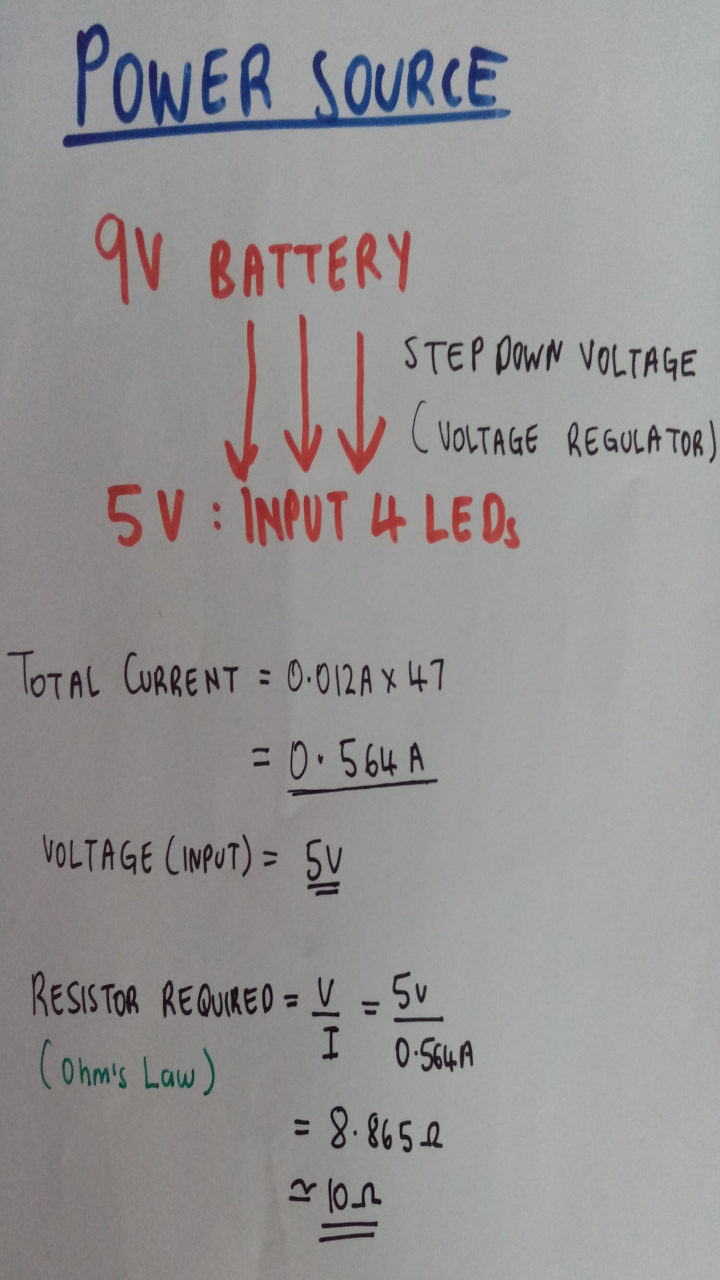 POWER SOURCE
9V BATTERY
STEP DOWN VOLTAGE
(VOLTAGE REGULATOR)
5V : INPUT 4 LEDs
TOTAL CURRENT = 0.012A × 47
= 0.564A
VOLTAGE (INPUT) = 5V
RESISTOR REQUIRED = V/I = 5V/0.564A
(Ohm's Law)
= 8.865Ω
≃ 10Ω